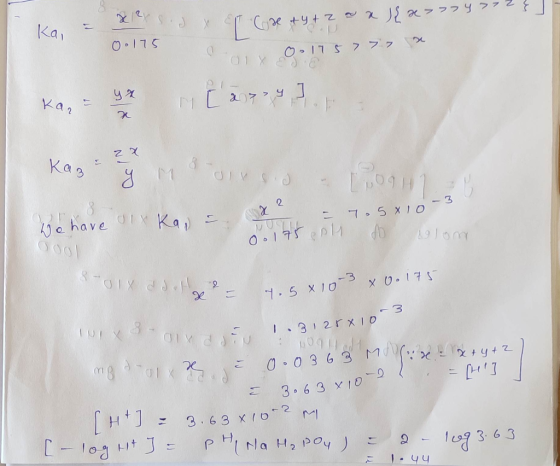 Ka₁ = x²/0.175 [(x+y+z ≈ x) {x>>>y>>z}]
0.175 >>> x
Ka₂ = yx/x [x>>y]
Ka₃ = zx/y
We have Ka₁ = x²/0.175 = 7.5×10⁻³
x² = 7.5×10⁻³ × 0.175
= 1.3125×10⁻³
x = 0.0363 M {∵ x = x+y+z
= 3.63×10⁻² = [H⁺]]
[H⁺] = 3.63×10⁻² M
[-log H⁺] = pH (NaH₂PO₄) = 2 - log 3.63
= 1.44